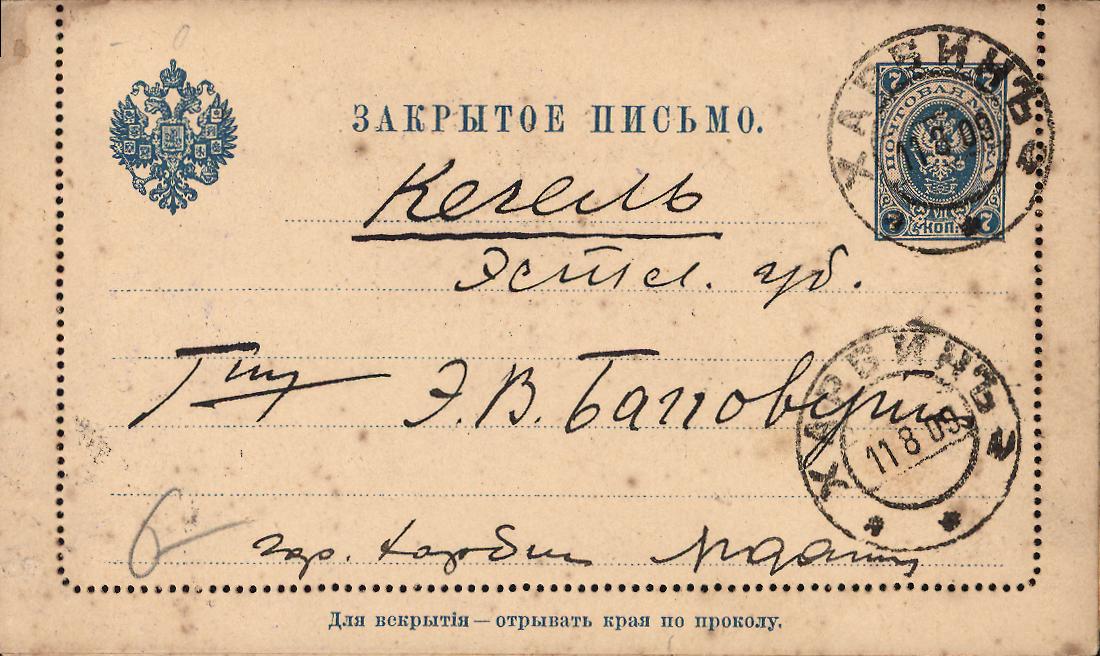 ЗАКРЫТОЕ ПИСЬМО.
7 7
ПОЧТОВАЯ МАРКА
7 КОП. 7
ХАРБИНЪ 2
11 8 09
Кегель
Эстл. губ.
Э. В.
ХАРБИНЪ 2
11 8 09
6
гор. Харбин
Для вскрытія — отрывать края по проколу.